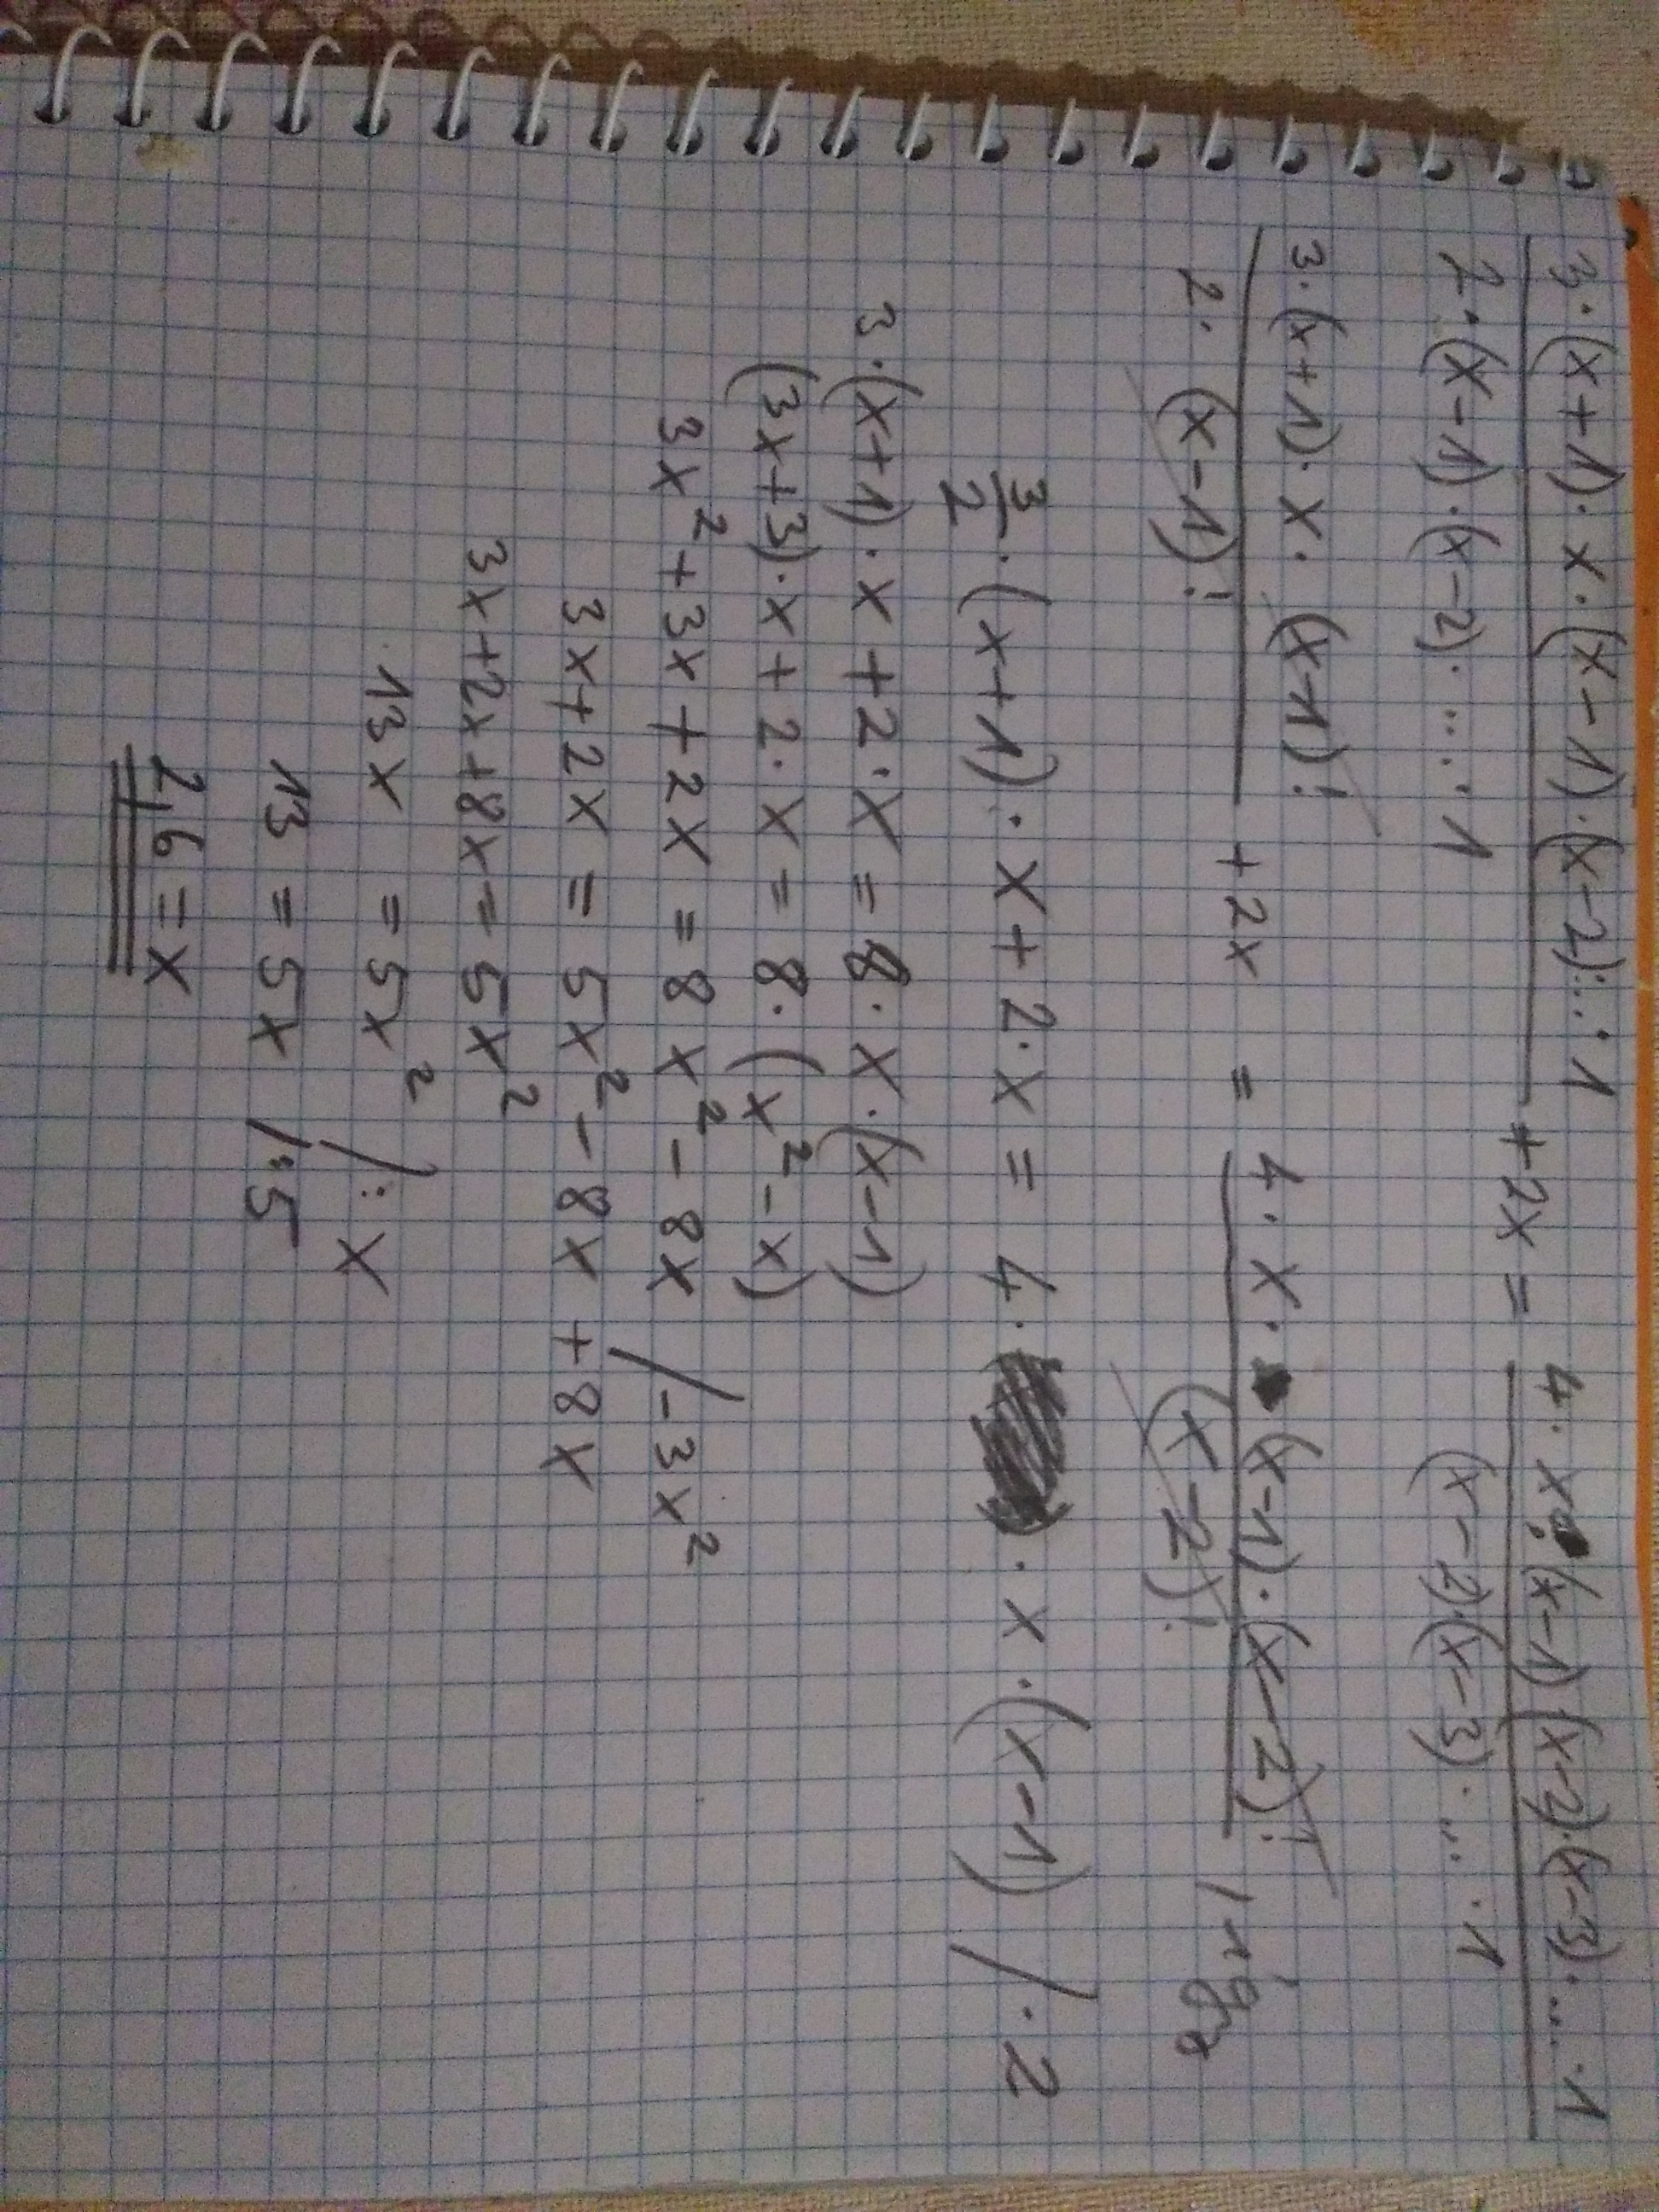 3·(x+1)·x·(x-1)·(x-2)·...·1 + 2x = 4·x·(x-1)(x-2)·(x-3)·...·1
2·(x-1)·(x-2)·...·1 (x-2)·(x-3)·...·1
3·(x+1)·x·(x-1)! + 2x = 4·x·(x-1)·(x-2)!
2·(x-1)! (x-2)!
3/2·(x+1)·x+2·x = 4·x·(x-1) /·2
3·(x+1)·x+2·x = 8·x·(x-1)
(3x+3)·x+2·x = 8·(x²-x)
3x²+3x+2x = 8x²-8x /-3x²
3x+2x = 5x²-8x +8x
3x+2x+8x = 5x²
13x = 5x² /:x
13 = 5x /:5
2,6 = x